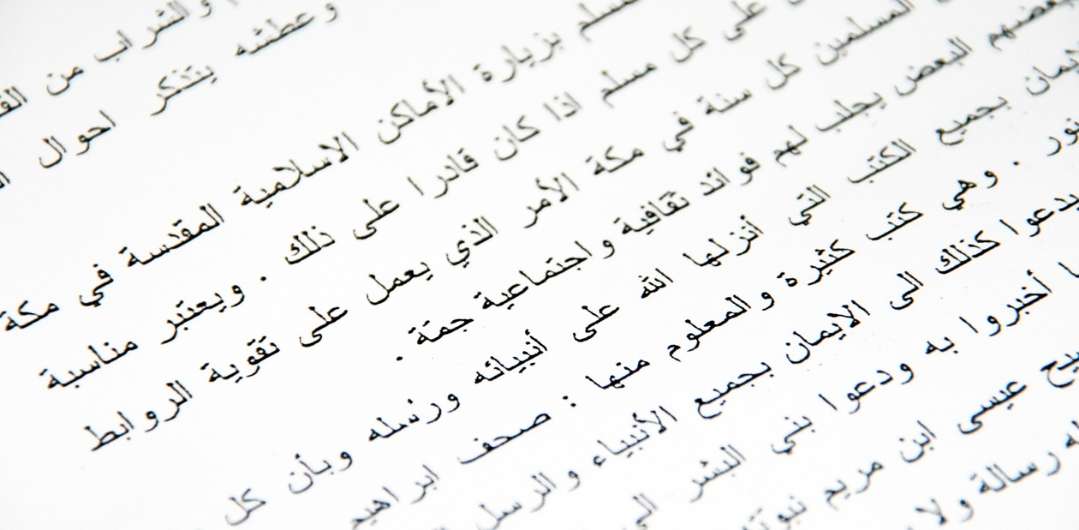 والشراب من
وعطشه يتذكر احوال
مسلم بزيارة الأماكن الاسلامية المقدسة في مكة
على كل مسلم اذا كان قادرا على ذلك . ويعتبر مناسبة
المسلمين كل سنة في مكة الأمر الذي يعمل على تقوية الروابط
بعضهم البعض يجلب لهم فوائد ثقافية واجتماعية جمّة .
بجميع الكتب التي أنزلها الله على أنبيائه ورسله وبأن كل
نور . وهي كتب كثيرة والمعلوم منها : صحف ابراهيم
يدعوا كذلك الى الايمان بجميع الأنبياء والرسل
أخبروا به ودعوا بني البشر الى
عيسى ابن مريم
رسالة ولا